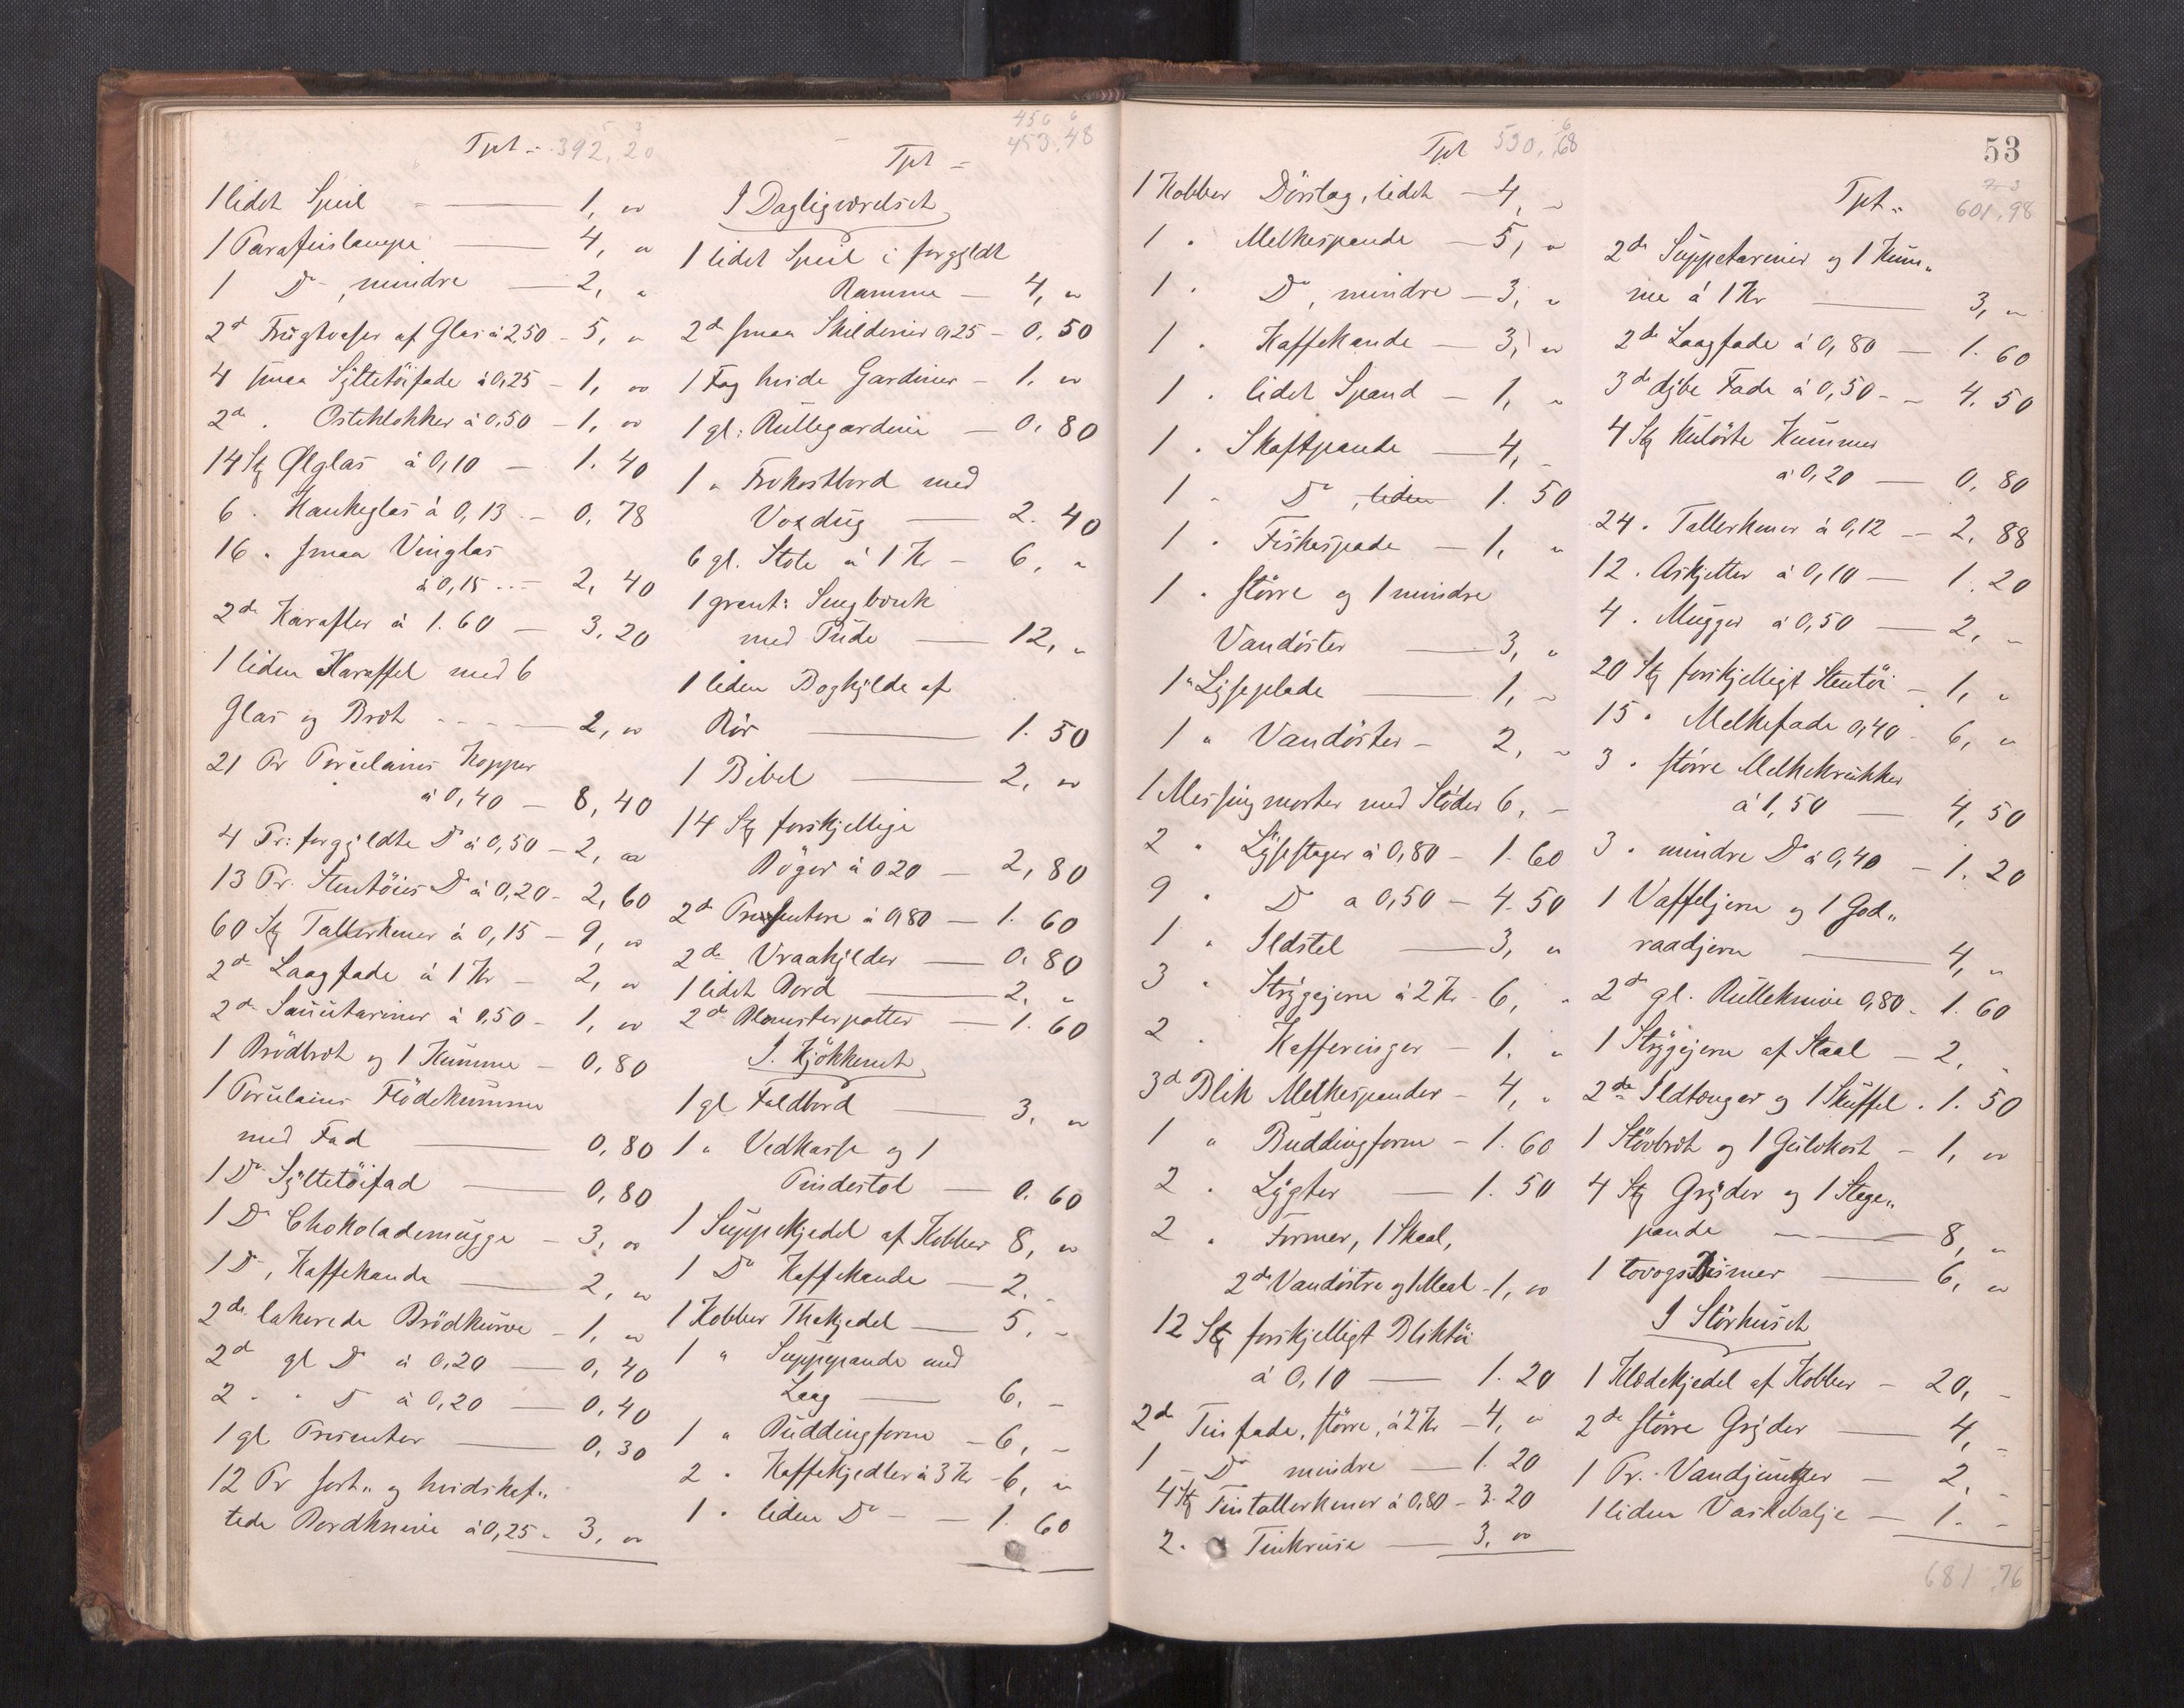 Tpt = 392, 20
1 lidet Speil - 1, "
1 Parafinslampe 4, "
1 Do, mindre 2, "
2de Frugtvaser af Glas à 2.50 - 5, "
4 smaa Syltetöifade à 0,25 - 1, "
2de " Osteklokker à 0,50 - 1, "
14 Stk Ølglas à 0,10 - 1. 40
6 " Hankeglas à 0,13 - 0, 78
16 " smaa Vinglas
à 0,15 - 2, 40
2de Karafler à 1.60 - 3, 20
1 liden Karaffel med 6
Glas og Bret - 2, "
21 Pr Porcelains Kopper
à 0,40 - 8, 40
4 Pr: forgyldte Do à 0,50 - 2, "
13 Pr. Stentöies Do à 0,20 - 2, 60
60 Stk Tallerkener à 0,15 - 9, "
2de Laagfade à 1 Kr - 2, "
2de Sausetariner à 0,50 - 1, "
1 Brödbret og 1 Kumme - 0, 80
1 Porcelains Flödekumme
med Fad 0, 80
1 Do Syltetöifad 0, 80
1 Do Chokolademugge - 3, "
1 Do, Kaffekande 2, "
2de lakerede Brödkurve - 1, "
2de gl Do à 0,20 - 0, 40
2 " " Do à 0,20 - 0, 40
1 gl Presenter 0, 30
12 Pr sort- og hvidskaf-
tede Bordknive à 0,25 - 3, "
456 6
Tpt = 453, 48
I Dagligværelset
1 lidet Speil i forgyldt
Ramme - 4, "
2de smaa Skilderier 0,25 - 0. 50
1 Fag hvide Gardiner - 1. "
1 gl: Rullegardin - 0. 80
1 " Frokostbord med
Voxdug 2. 40
6 gl. Stole à 1 Kr - 6, "
1 grønt: Sengbænk
med Pude 12, "
1 liden Boghylde af
Rör 1. 50
1 Bibel 2, "
14 Stk forskjellige
Böger à 0.20 - 2, 80
2de Presentere à 0,80 - 1. 60
2de Vraahylder 0. 80
1 lidet Bord 2. "
2de Blomsterpotter 1. 60
I. Kjökkenet
1 gl Faldbord 3. "
1 " Vedkasse og 1
Pindestol 0. 60
1 Suppekjedel af Kobber 8, "
1 Do Kaffekande 2. -
1 Kobber Thekjedel 5. -
1 " Suppepande med
Laag 6. -
1 " Buddingform - 6, -
2 " Kaffekjedler à 3 Kr - 6, "
1 " liden Do - 1. 60
53
Tpt 530, 68
1 Kobber Dörslag, lidet - 4, -
1 " Melkespande - 5, "
1 " Do, mindre - 3, "
1 " Kaffekande - 3, "
1 " lidet Spand - 1, "
1 " Skaftpande 4, -
1 " Do, liden 1. 50
1 " Fiskespade - 1, "
1 " större og 1 mindre
Vandöster 3, "
1 " Lyseplade 1, -
1 " Vandöster - 2, -
1 Messing morter med Stöder 6, -
2 " Lysestager à 0,80 - 1. 60
9 " Do a 0,50 - 4. 50
1 " Ildstel 3, "
3 " Strygejern à 2 Kr - 6, "
2 " Kafferinger - 1. "
3de Blik Melkespander - 4, "
1 " Buddingform - 1. 60
2 " Lygter 1. 50
2 " Former, 1 Skaal,
2de Vandöstre og 1 Maal - 1, "
12 Stk forskjelligt Bliktöi
à 0,10 1. 20
2de Tinfade, större, à 2 Kr - 4, "
1 Do mindre 1. 20
4 Stk Tintallerkener à 0,80 - 3. 20
2 " Tinkruse 3, "
Tpt = 601, 98
2de Suppetariner og 1 Kum-
me à 1 Kr 3, "
2de Laagfade à 0,80 - 1. 60
3de dybe Fade à 0,50 - 4. 50
4 Stk kulörte Kummer
à 0,20 0, 80
24 " Tallerkener à 0,12 - 2, 88
12 " Askjetter à 0,10 - 1. 20
4 " Mugger à 0,50 2, -
20 Stk forskjelligt Stentöi - 1, "
15 " Melkefade 0,40 - 6, "
3 " större Melkekrukker
à 1,50 4, 50
3 " mindre Do à 0,40 - 1. 20
1 Vaffeljern og 1 God-
raadjern 4, "
2de gl. Rulleknive 0,80 - 1. 60
1 Strygejern af Staal - 2, -
2de Ildtænger og 1 Skuffel - 1. 50
1 Stövbret og 1 Gulvkost - 1, "
4 Stk Gryder og 1 Stege-
pande 8, "
1 tovogs Bismer 6, "
I Störhuset
1 Klædekjedel af Kobber - 20, -
2de större Gryder 4, -
1 Pr. Vandjunger - 2, -
1 liden Vaskebalje 1. -
681, 76